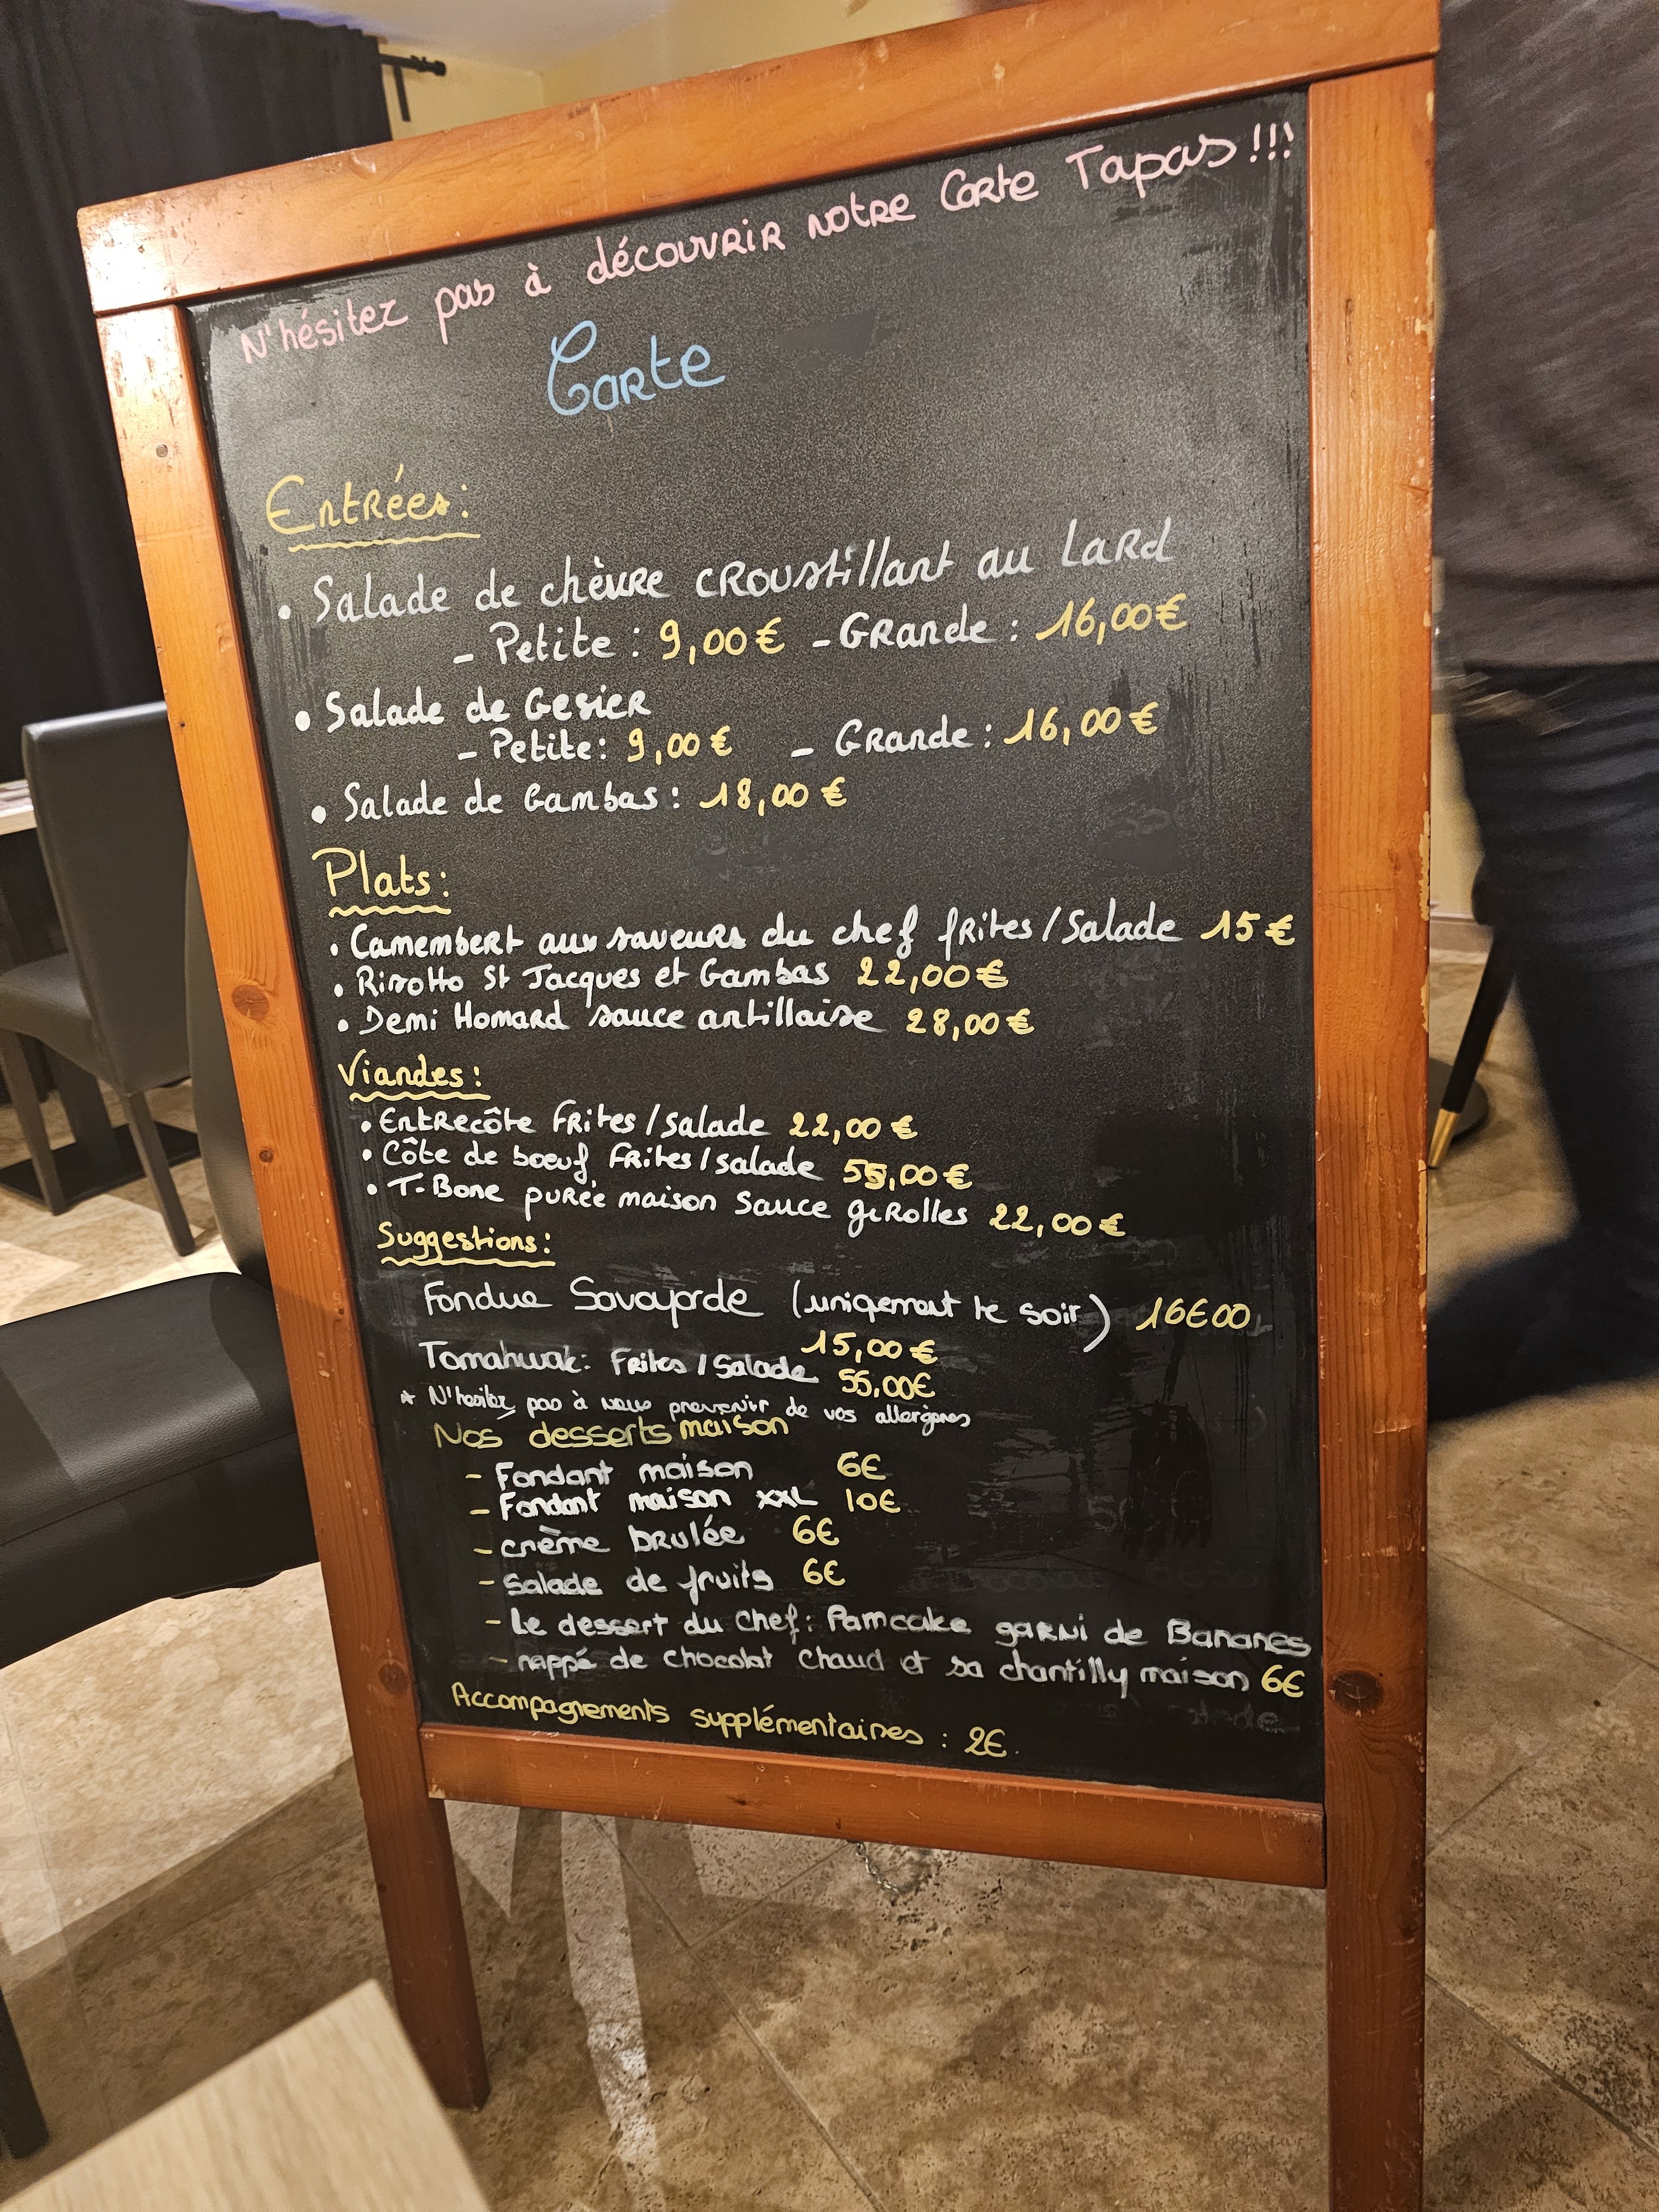 N'hésitez pas à découvrir notre Carte Tapas !!!
Carte
Entrées :
• Salade de chèvre croustillant au lard
- Petite : 9,00 € - Grande : 16,00 €
• Salade de Gesier
- Petite : 9,00 € - Grande : 16,00 €
• Salade de Gambas : 18,00 €
Plats :
• Camembert aux saveurs du chef frites / Salade 15 €
• Risotto St Jacques et Gambas 22,00 €
• Demi Homard sauce antillaise 28,00 €
Viandes :
• Entrecôte Frites / Salade 22,00 €
• Côte de boeuf Frites / Salade 55,00 €
• T-Bone purée maison Sauce girolles 22,00 €
Suggestions :
Fondue Savoyarde (uniqement le soir) 16€00
15,00 €
Tomahwak : Frites / Salade 55,00€
* N'hesitez pas à nous prevenir de vos allergenes
Nos desserts maison
- Fondant maison 6€
- Fondant maison XXL 10€
- crème brulée 6€
- Salade de fruits 6€
- Le dessert du Chef : Pamcake garni de Bananes
- nappé de chocolat chaud et sa chantilly maison 6€
Accompagnements supplémentaires : 2€.